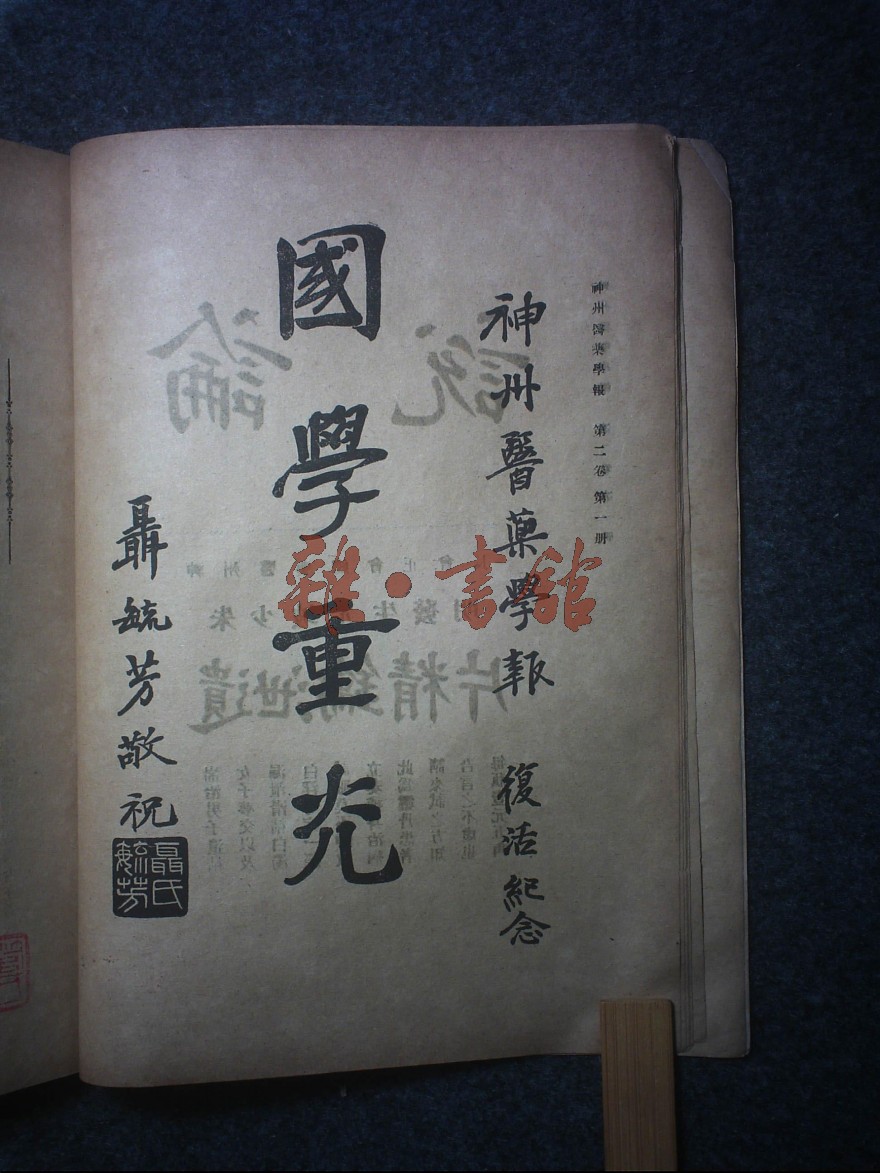 神州醫藥學報　第二卷第一册
神州醫藥學報　復活紀念
國學重光
聶毓芳敬祝
聶氏毓芳
雜·書館